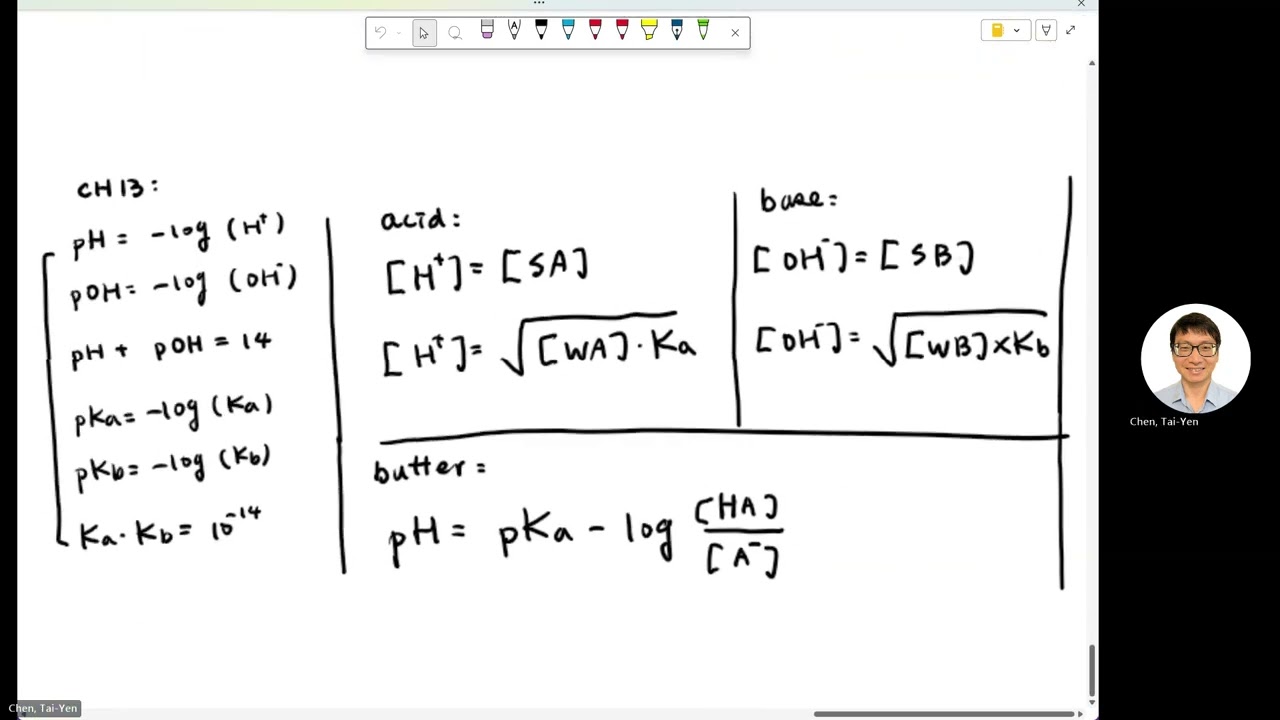 CH 13:
pH = -log (H⁺)
pOH = -log (OH⁻)
pH + pOH = 14
pKa = -log (Ka)
pKb = -log (Kb)
Ka · Kb = 10⁻¹⁴
acid:
[H⁺] = [SA]
[H⁺] = √[WA] · Ka
base:
[OH⁻] = [SB]
[OH⁻] = √[WB] × Kb
butter:
pH = pKa - log [HA]/[A⁻]
Chen, Tai-Yen
Chen, Tai-Yen